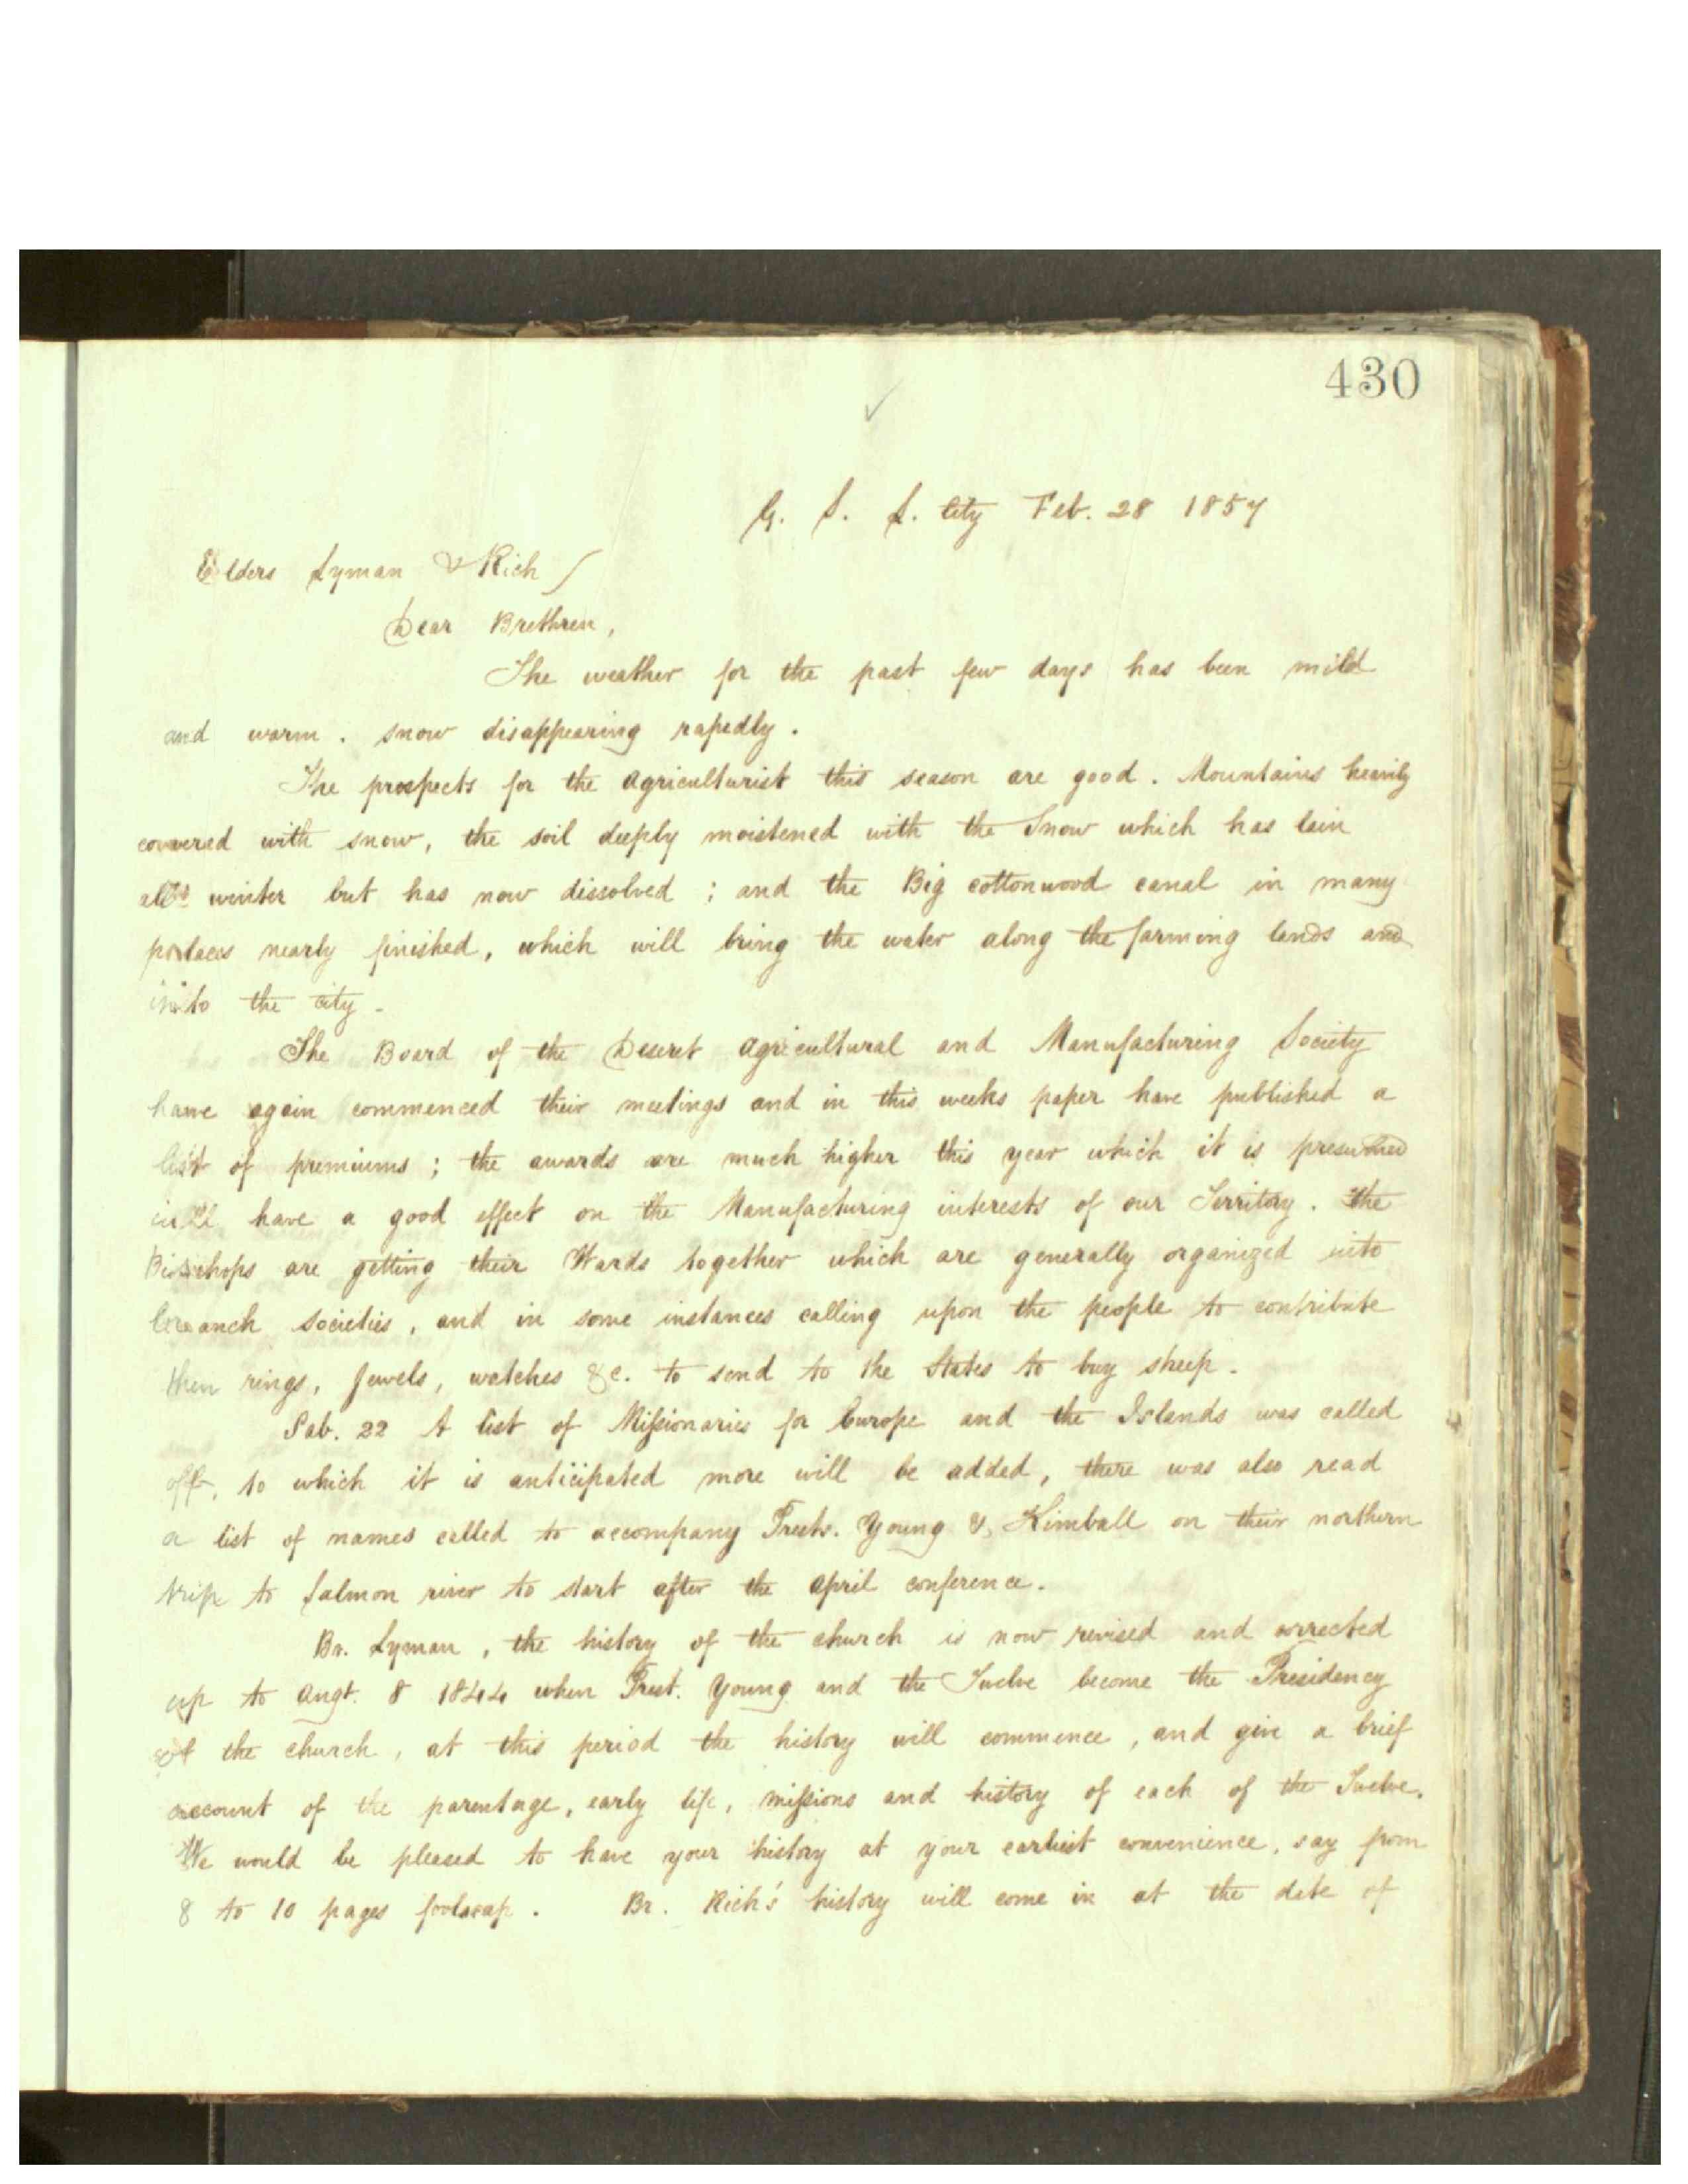 430
G. S. L. City Feb. 28 1857
Elders Lyman & Rich
Dear Brethren,
The weather for the past few days has been mild
and warm. snow disappearing rapedly.
The prospects for the agriculturist this season are good. Mountains heavily
covered with snow, the soil deeply moistened with the Snow which has lain
all winter but has now dissolved; and the Big cottonwood canal in many
places nearly finished, which will bring the water along the farming lands and
into the city.
The Board of the Deseret Agricultural and Manufacturing Society
have again commenced their meetings and in this weeks paper have published a
list of premiums; the awards are much higher this year which it is presumed
will have a good effect on the Manufacturing interests of our Territory. The
Bishops are getting their Wards together which are generally organized into
branch societies, and in some instances calling upon the people to contribute
their rings, Jewels, watches &c. to send to the States to buy sheep.
Sab. 22 A list of Missionaries for Europe and the Islands was called
off, to which it is anticipated more will be added, there was also read
a list of names called to accompany Prests. Young & Kimball on their northern
trip to Salmon river to start after the April conference.
Br. Lyman, the history of the church is now revised and corrected
up to Augt. 8 1844 when Prest. Young and the Twelve become the Presidency
of the church, at this period the history will commence, and give a brief
account of the parentage, early life, missions and history of each of the Twelve.
We would be pleased to have your history at your earliest convenience, say from
8 to 10 pages foolscap. Br. Rich's history will come in at the date of